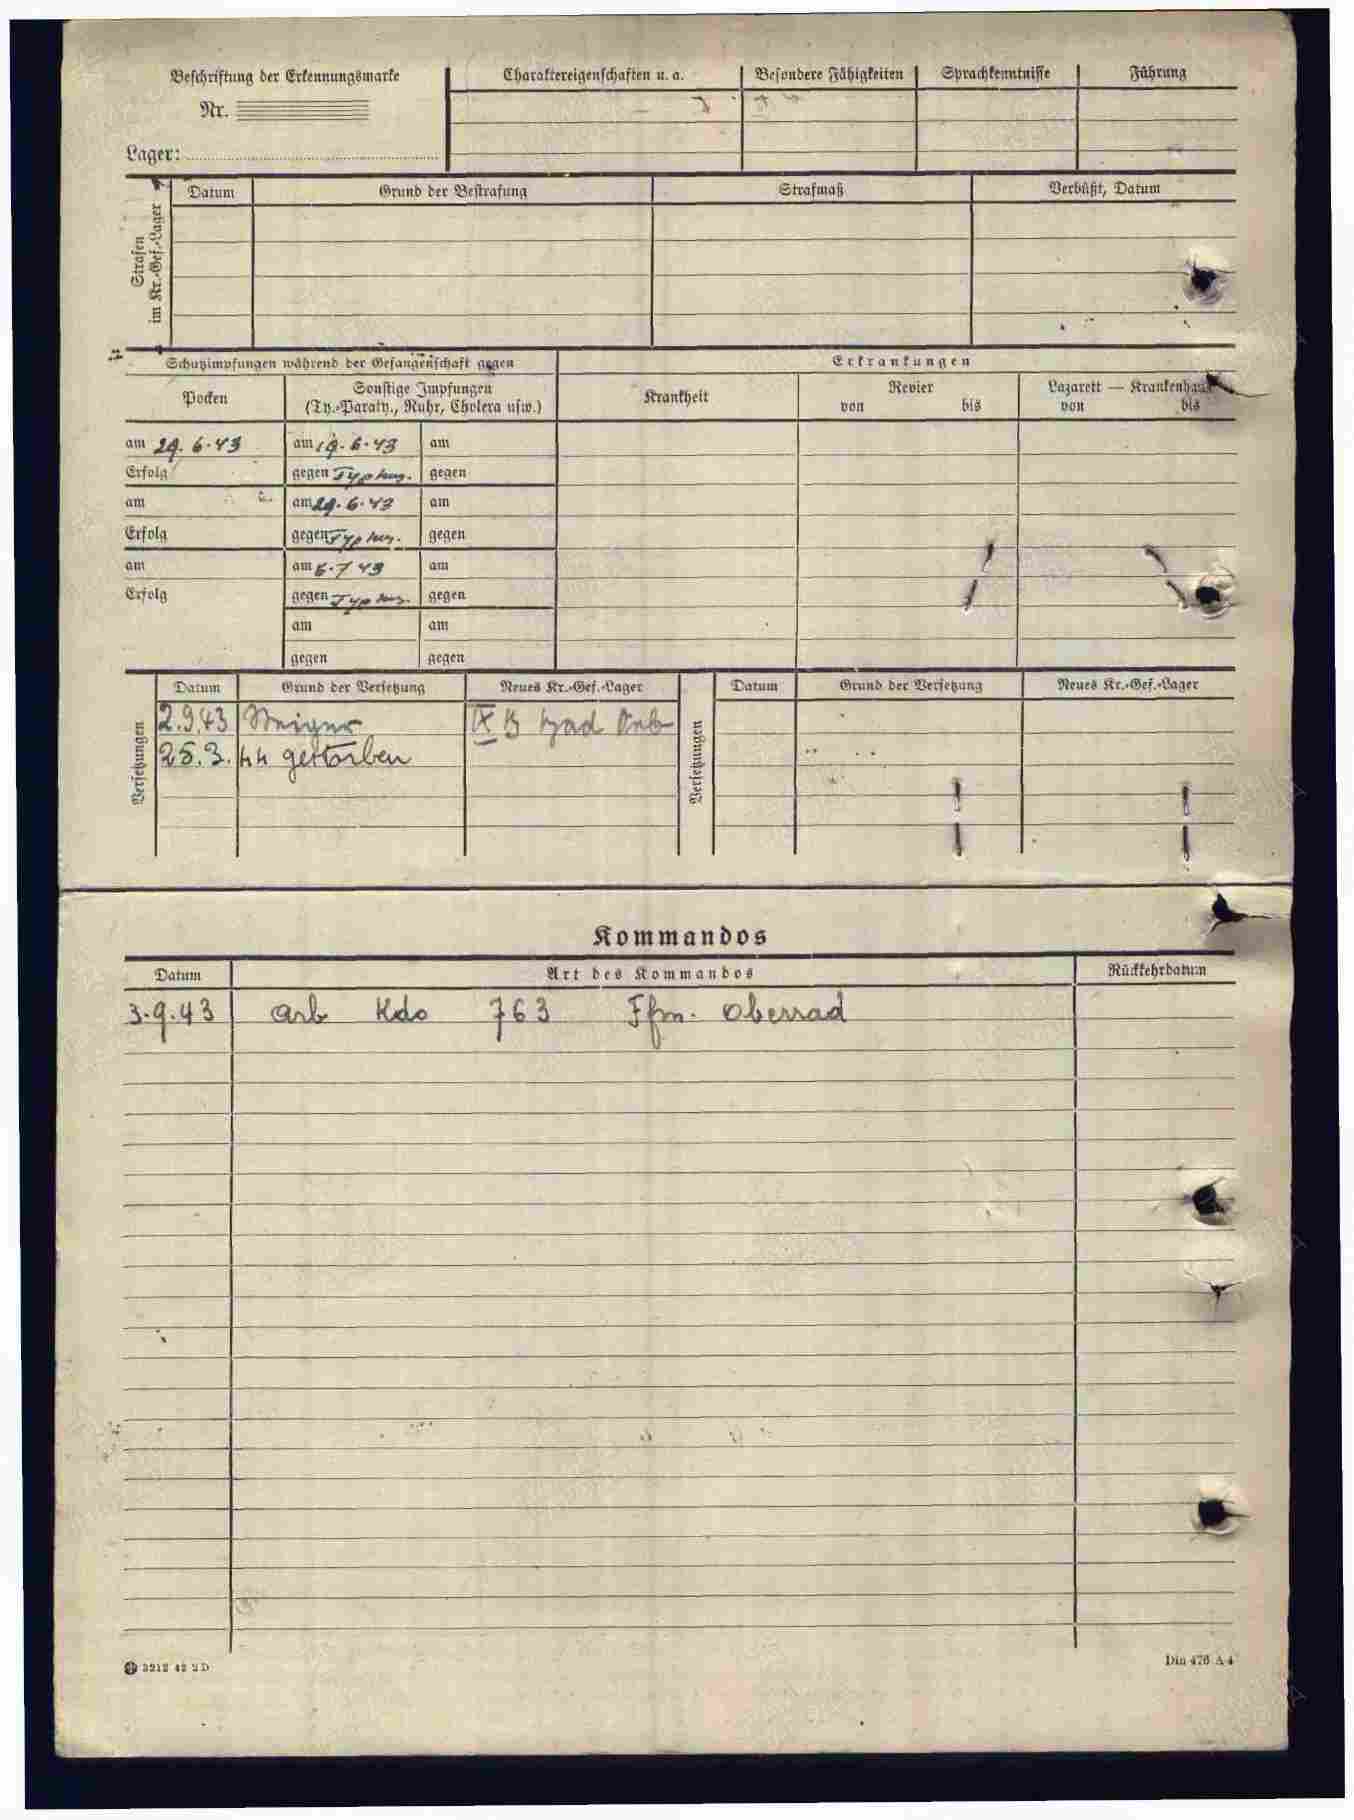 Beschriftung der Erkennungsmarke
Nr.
Lager:
Charaktereigenschaften u. a.
Besondere Fähigkeiten
Sprachkenntnisse
Führung
Strafen
im Kr.-Gef.-Lager
Datum
Grund der Bestrafung
Strafmaß
Verbüßt, Datum
Schutzimpfungen während der Gefangenschaft gegen
Erkrankungen
Pocken
Sonstige Impfungen
(Ty.-Paraty., Ruhr, Cholera usw.)
Krankheit
Revier
von bis
Lazarett — Krankenhaus
von bis
am 29. 6. 43 am 19. 6. 43 am
Erfolg gegen Typhus. gegen
am am 29. 6. 43 am
Erfolg gegen Typhus. gegen
am am 6. 7 43 am
Erfolg gegen Typhus. gegen
am am
gegen gegen
Versetzungen
Datum Grund der Versetzung Neues Kr.-Gef.-Lager
2.9.43 IX B Bad Orb
25.3. 44 gestorben
Versetzungen
Datum Grund der Versetzung Neues Kr.-Gef.-Lager
Kommandos
Datum Art des Kommandos Rückkehrdatum
3.9.43 Arb Kdo 763 Ffm. Oberrad
3212 42 2 D
Din 476 A 4